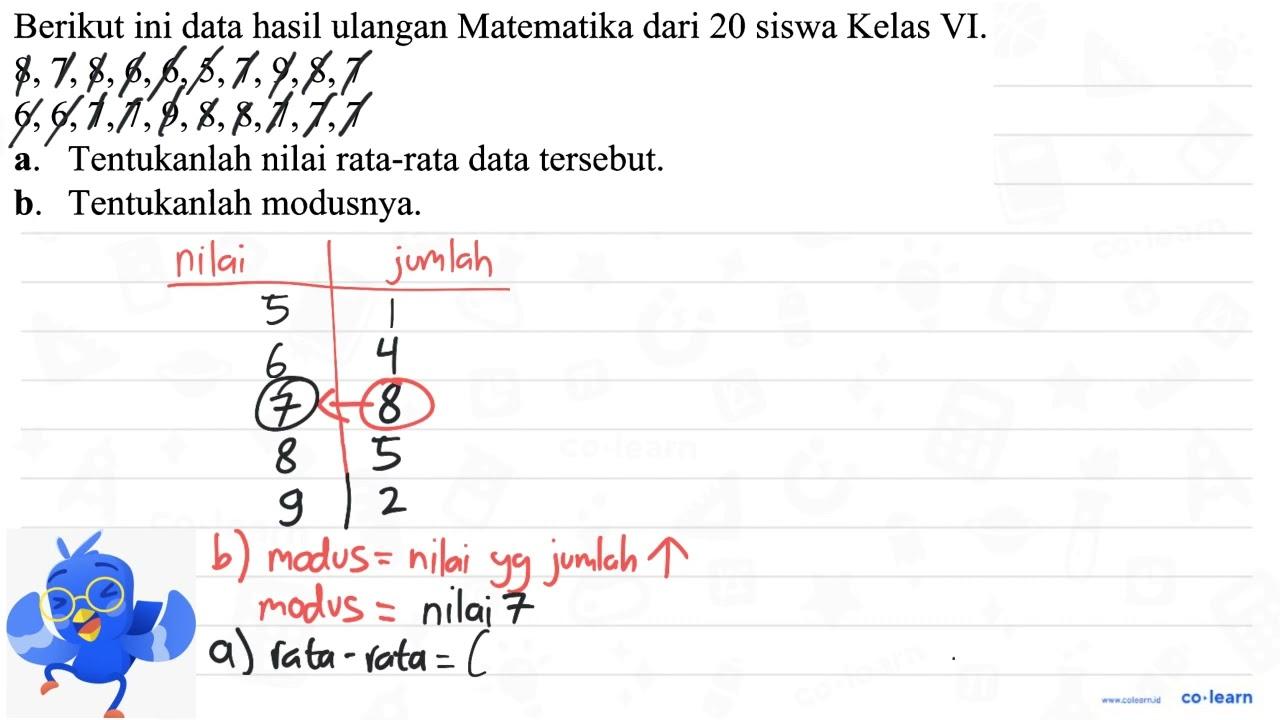 Berikut ini data hasil ulangan Matematika dari 20 siswa Kelas VI.
8, 7, 8, 6, 6, 5, 7, 9, 8, 7
6, 6, 7, 7, 9, 8, 8, 7, 7, 7
a. Tentukanlah nilai rata-rata data tersebut.
b. Tentukanlah modusnya.
nilai jumlah
5 1
6 4
7 ← 8
8 5
9 2
b) modus = nilai yg jumlah ↑
modus = nilai 7
a) rata-rata = (
www.colearn.id co·learn